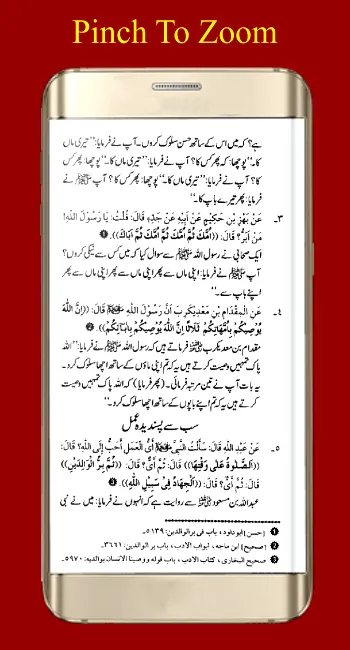 Pinch To Zoom
ہے؟ کہ میں اس کے ساتھ حسن سلوک کروں۔ آپ نے فرمایا: ’’تیری ماں
کا۔‘‘ پوچھا: پھر کس کا؟ آپ نے فرمایا: ’’تیری ماں کا۔‘‘ پوچھا: پھر کس
کا؟ آپ نے فرمایا: ’’تیری ماں کا۔‘‘ پوچھا: پھر کس کا؟ آپ ﷺ نے
فرمایا: پھر تیرے باپ کا۔‘‘
۳۔ عَنْ بَهْزِ بْنِ حَكِيْمٍ عَنْ اَبِيْهِ عَنْ جَدِّهٖ قَالَ: قُلْتُ: يَا رَسُوْلَ اللّٰهِ!
مَنْ اَبَرُّ؟ قَالَ: ((اُمَّكَ ثُمَّ اُمَّكَ ثُمَّ اُمَّكَ ثُمَّ اَبَاكَ)). ❶
ایک صحابی نے رسول اللہ ﷺ سے سوال کیا کہ میں کس سے نیکی کروں؟
آپ ﷺ نے فرمایا: اپنی ماں سے پھر اپنی ماں سے پھر اپنی ماں سے پھر
اپنے باپ سے۔‘‘
۴۔ عَنِ الْمِقْدَامِ بْنِ مَعْدِيْكَرِبَ اَنَّ رَسُوْلَ اللّٰهِ ﷺ قَالَ: ((اِنَّ اللّٰهَ
يُوْصِيْكُمْ بِاُمَّهَاتِكُمْ ثَلَاثًا اِنَّ اللّٰهَ يُوْصِيْكُمْ بِاٰبَآئِكُمْ)). ❷
مقدام بن معدیکرب فرماتے ہیں کہ رسول اللہ ﷺ نے فرمایا: ’’اللہ
پاک تمہیں وصیت کرتے ہیں یہ کہ تم اپنی ماؤں کے ساتھ اچھا سلوک کرو۔
یہ بات آپ نے تین مرتبہ فرمائی۔ (پھر فرمایا) کہ اللہ پاک تمہیں وصیت
کرتے ہیں یہ کہ تم اپنے باپوں کے ساتھ اچھا سلوک کرو۔‘‘
سب سے پسندیدہ عمل
۵۔ عَنْ عَبْدِ اللّٰهِ قَالَ: سَأَلْتُ النَّبِيَّ ﷺ اَيُّ الْعَمَلِ اَحَبُّ اِلَى اللّٰهِ؟ قَالَ:
((اَلصَّلٰوةُ عَلٰى وَقْتِهَا)) قَالَ: ثُمَّ اَيٌّ؟ قَالَ: ((ثُمَّ بِرُّ الْوَالِدَيْنِ))
قَالَ: ثُمَّ اَيٌّ؟ قَالَ: ((اَلْجِهَادُ فِيْ سَبِيْلِ اللّٰهِ)). ❸
عبداللہ بن مسعود سے روایت ہے کہ انہوں نے فرمایا: میں نے نبی
❶ [حسن] ابوداود، باب فی بر الوالدین: ۵۱۳۹۔
❷ [صحیح] ابن ماجه، ابواب الادب، باب بر الوالدین: ۳۶۶۱۔
❸ صحیح البخاری، کتاب الادب، باب قوله ووصینا الانسان بوالدیه: ۵۹۷۰۔